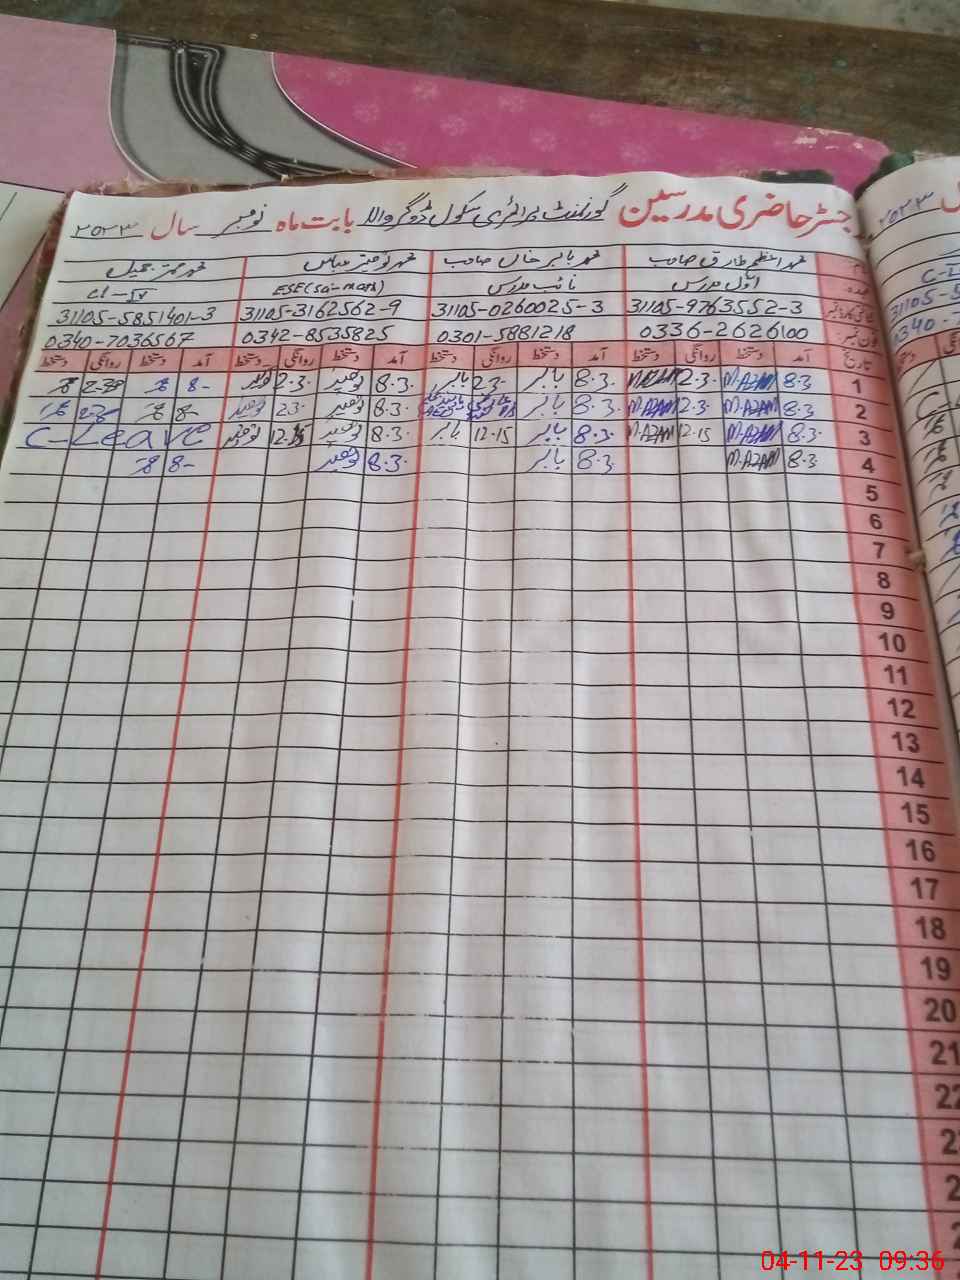 رجسٹر حاضری مدرسین گورنمنٹ پرائمری سکول ڈوگر والا بابت ماہ نومبر سال ۲۰۲۳
محمد اعظم طارق صاحب محمد بابر خان صاحب محمد توحید عباس محمد
عہدہ اول مدرس نائب مدرس ESE(Sci-math) CL-IV
31105-9763552-3 31105-0260025-3 31105-3162562-9 31105-5851401-3
فون نمبر 0336-2626100 0301-5881218 0342-8535825 0340-7036567
تاریخ آمد دستخط روانگی دستخط آمد دستخط روانگی دستخط آمد دستخط روانگی دستخط آمد دستخط روانگی دستخط
1 8.3 M.AZAM 2.3 M.AZAM 8.3 بابر 2.3 بابر 8.3 توحید 2.3 توحید 8 2.30
2 8.3 M.AZAM 2.3 M.AZAM 8.3 بابر 8.3 توحید 2.3 توحید 8
3 8.3 M.AZAM 12.15 M.AZAM 8.3 بابر 12.15 بابر 8.3 توحید 12.15 توحید C-Leave
4 8.3 M.AZAM 8.3 بابر 8.3 توحید 8
5
6
7
8
9
10
11
12
13
14
15
16
17
18
19
20
21
22
04-11-23 09:36